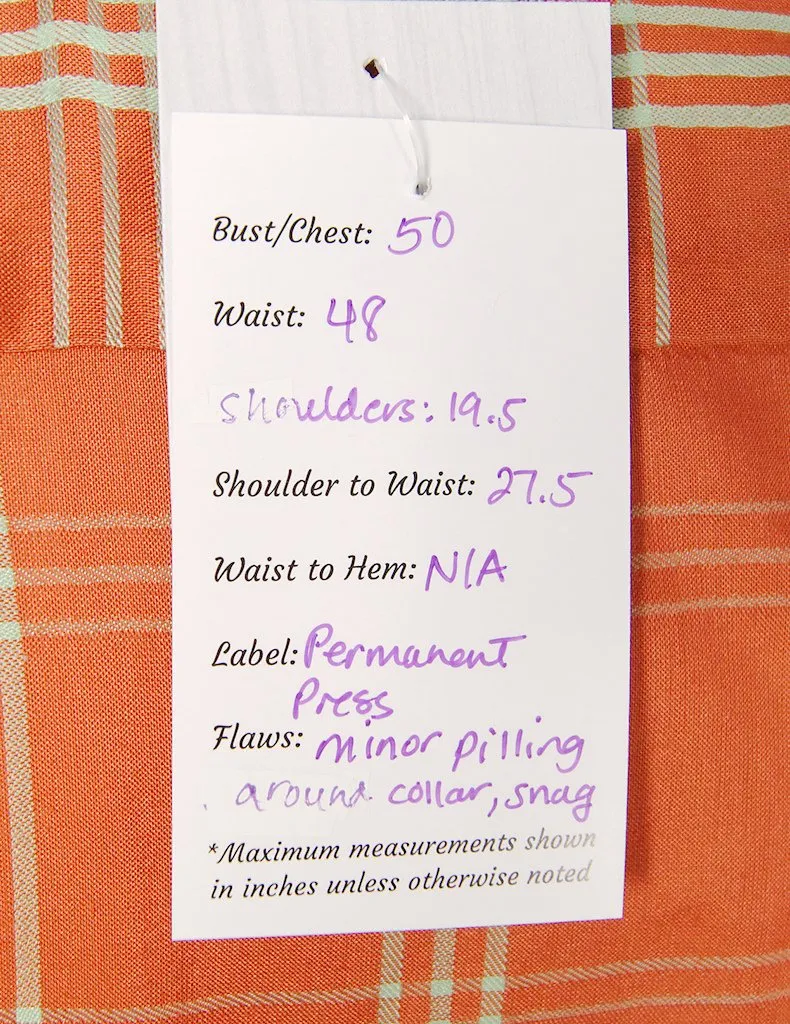 Bust/Chest: 50
Waist: 48
Shoulders: 19.5
Shoulder to Waist: 27.5
Waist to Hem: N/A
Label: Permanent
Press
Flaws: minor pilling
around collar, snag
*Maximum measurements shown
in inches unless otherwise noted